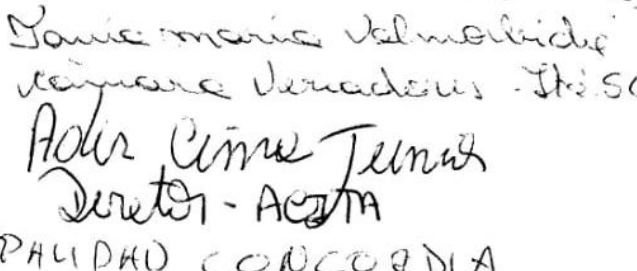 Tania maria Valmorbida
Câmara Vereadores - Itá SC
Adir Cima Junior
Diretor -
CONCORDIA